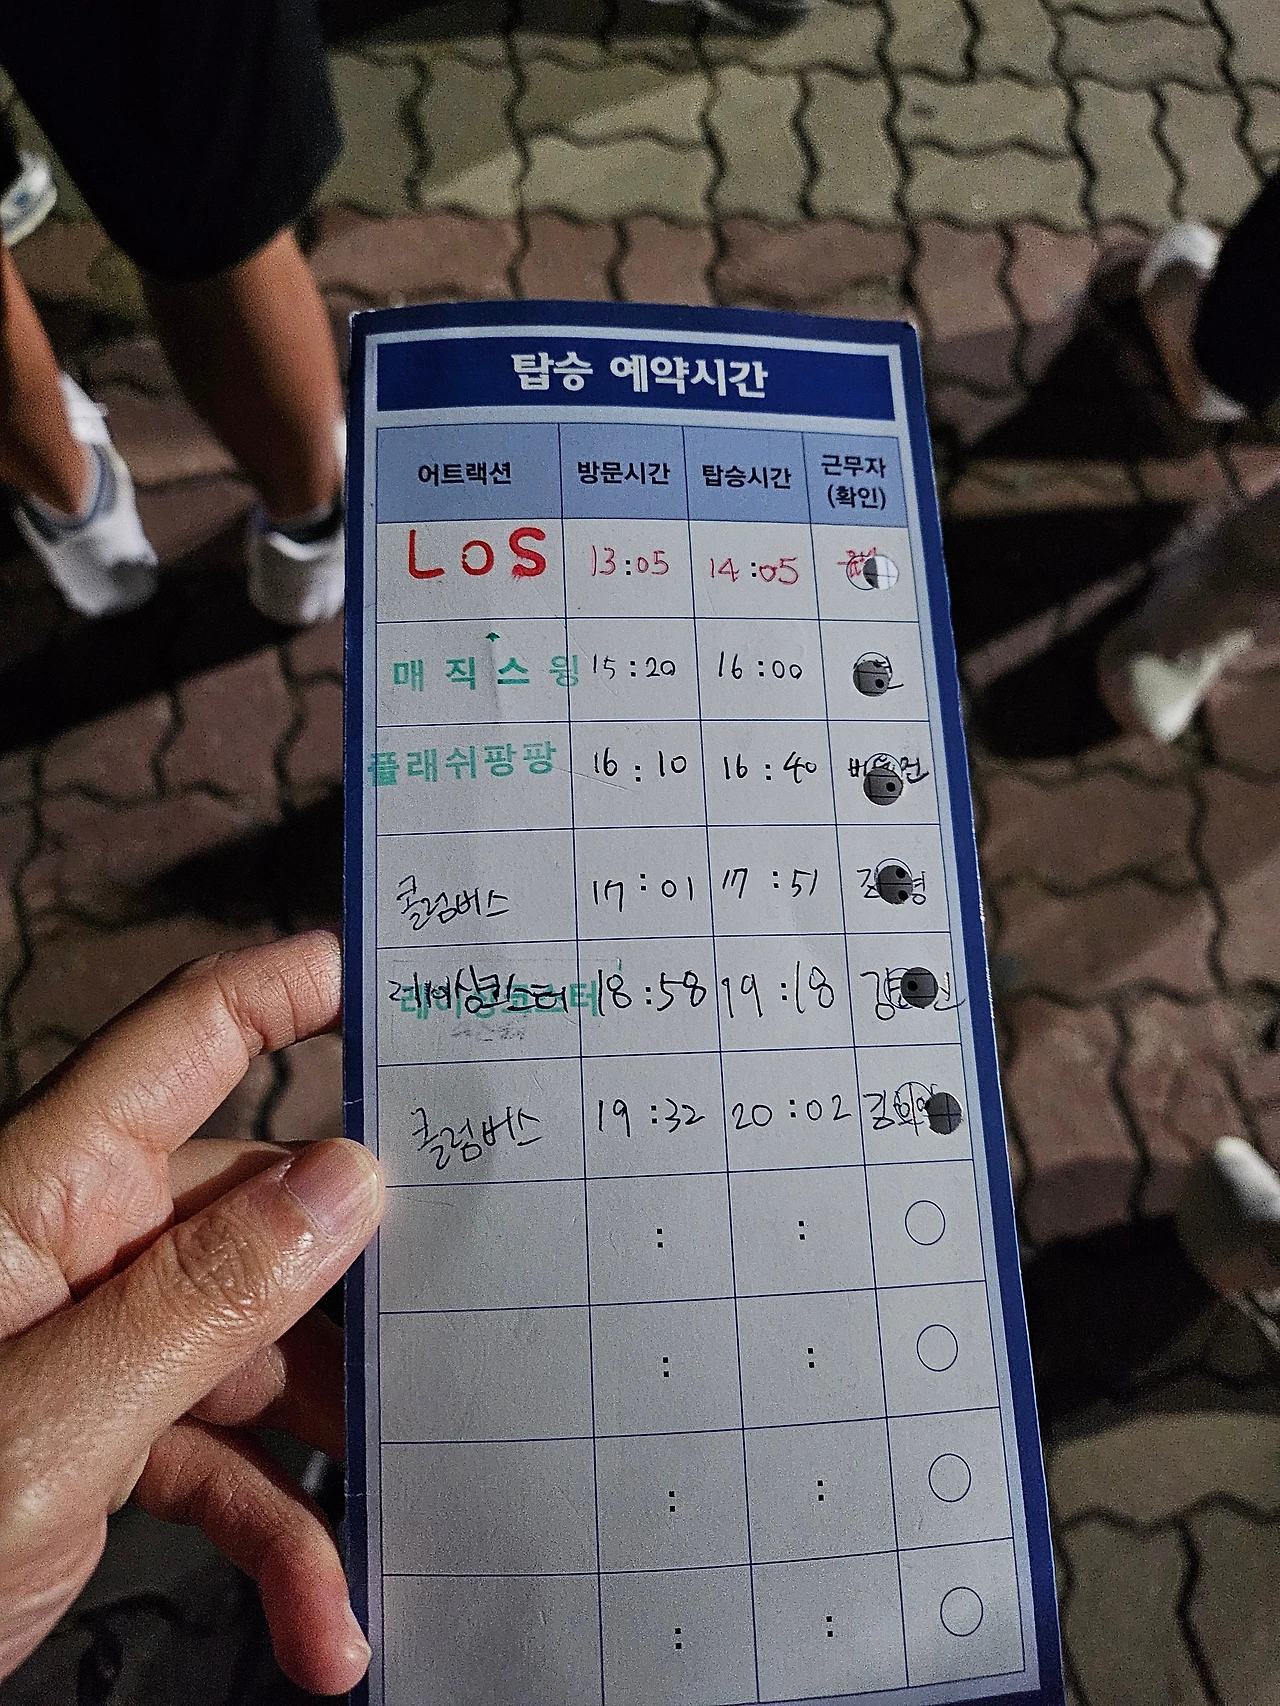 탑승 예약시간
어트랙션 방문시간 탑승시간 근무자
(확인)
LoS 13:05 14:05
매직스윙 15:20 16:00
플래쉬팡팡 16:10 16:40
콜럼버스 17:01 17:51
레이싱코스터 18:58 19:18
콜럼버스 19:32 20:02
: :
: :
: :
: :